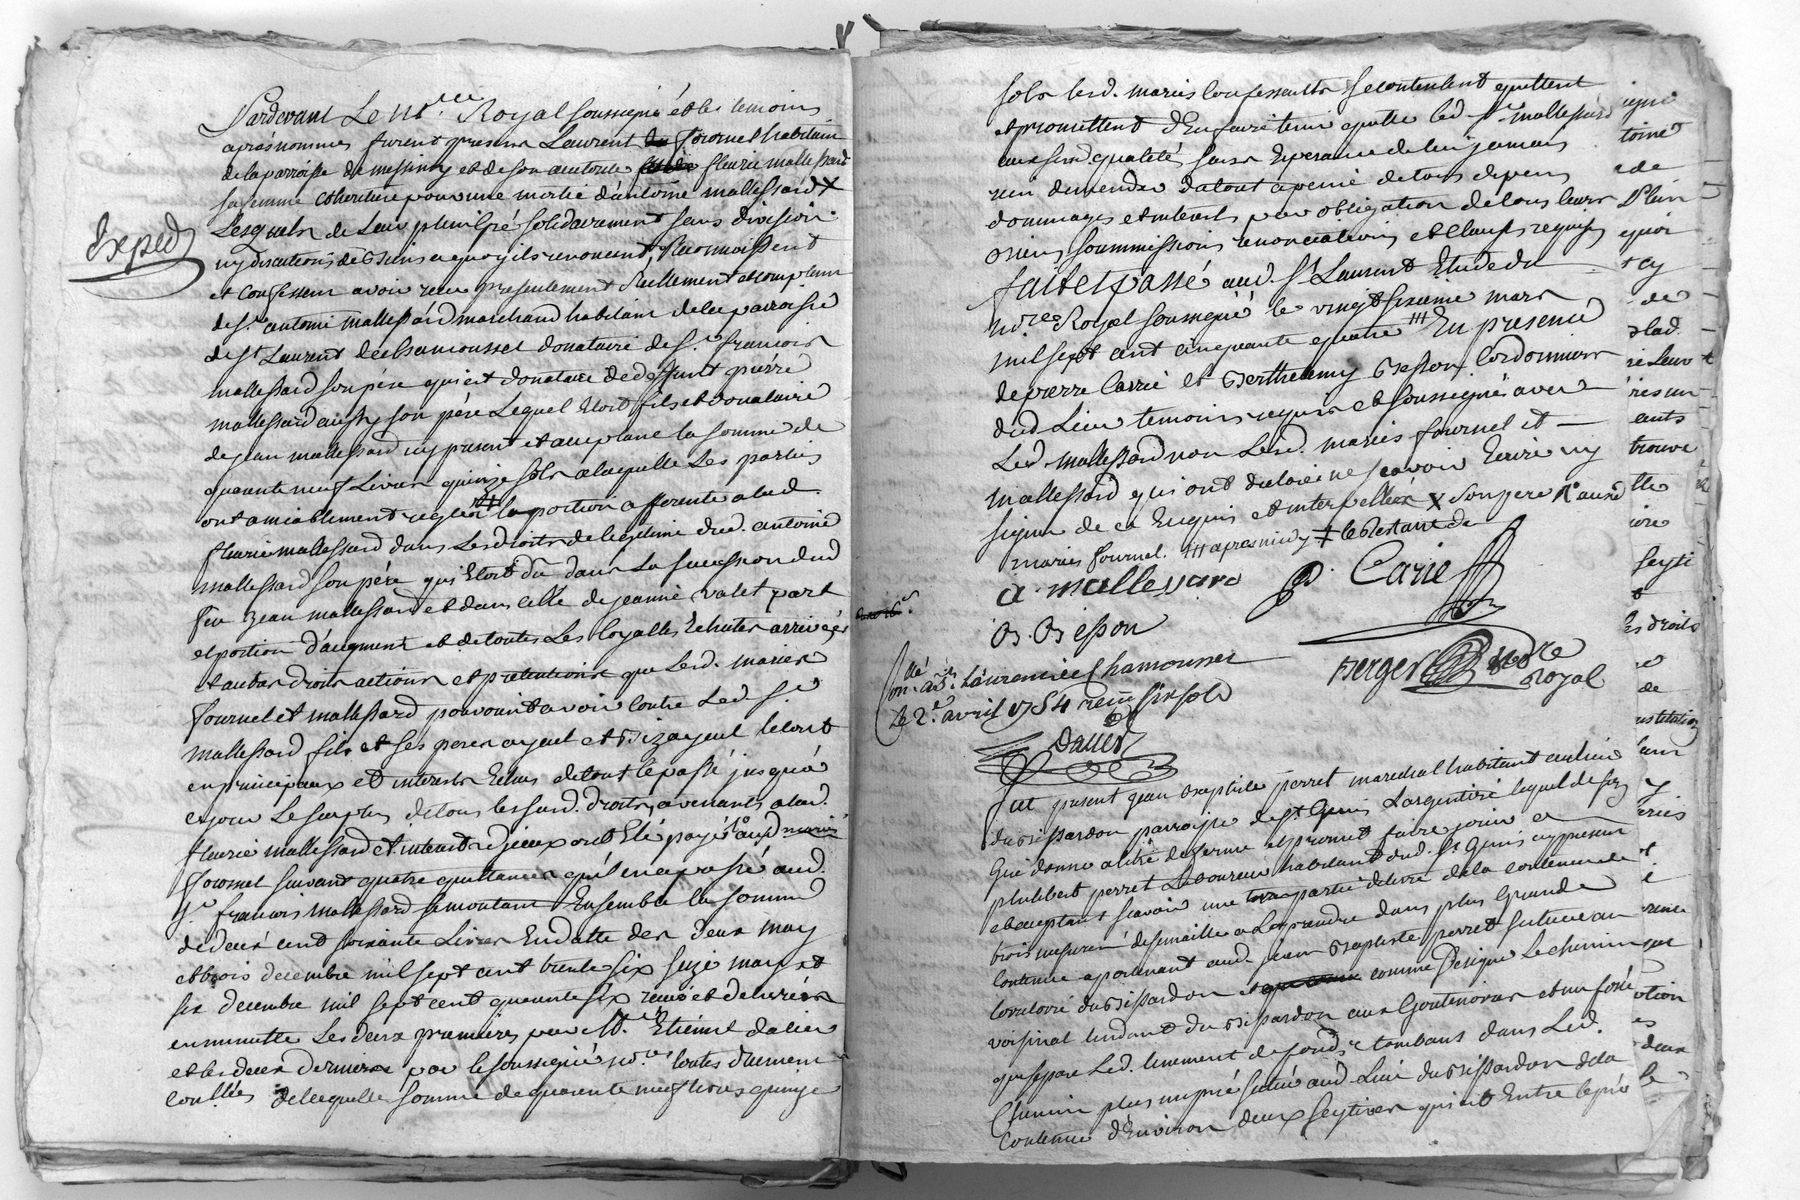 Pardevant Le no.re Royal soussigné et les temoins
apres nommes furent presens Laurent fournel habitant
de la parroisse de messimy et de son autorité fleurie mallessard
sa femme et heritiere pour une moitié d'antoine mallessard X
Lesquels de leur plein gré solidairement sans division
ny discution de biens a quoy ils renoncent, Reconnoissent
Exped
et confessent avoir receu presentement Reellement et comptant
de sr. antoine mallessard marchand habitant de la parroisse
de St Laurent de chamousset donataire de Sr. francois
mallessard son pére qui est donataire de deffunt pierre
mallessard aussy son pére Lequel Etoit fils et donataire
de jean mallessard icy present et acceptant la somme de
quarante neuf Livres quinze sols a laquelle Les parties
ont amiablement reglé la portion afferente a lad.
fleurie mallessard dans Les droits de legitime dud. antoine
mallessard son pére qui Etoit du dans La succession dud
feu jean mallessard et dans celle de jeanne valet part
et portion d'augment et de toutes Les loyalles Echutes arrivées
et autres droits actions et pretentions que Lesd. mariés
fournel et mallessard pouvoint avoir contre Led. Sr.
mallessard fils et ses peres ayeul et Bizayeul le tout
en principaux et interets Echus de tout le passé jusqu'a
ce jour Le surplus de tous les susd. droits avenants a lad.
fleurie mallessard et interets d'iceux ont Eté payés aud
fournel suivant quatre quittances qu'il en a passé aud.
Sr. francois mallessard se montant Ensemble la somme
de deux cent soixante Livres En datte des deux may
et trois decembre mil sept cent trente six seize may et
six decembre mil sept cent quarante six receues et delivrées
en minutte Les deux premieres par M.e Etienne dalier
et les deux dernieres par le soussigné no.re toutes duement
conllées de laquelle somme de quarante neuf livres quinze
sols lesd. mariés confessants se contentent quittent
et promettent d'En faire tenir quitte led. Sr. mallessard
aux susd. qualités sans Esperance de luy jamais
rien demander dutout a peine de tous depens
dommages et interets par obligation de tous leurs
biens soummissions renonciations et clauses requises
fait et passé aud. St. Laurent Etude du
no.re Royal soussigné le vingt sixieme mars
mil sept cent cinquante quatre /// En presence
de pierre Carrié et Berthelemy Besson Cordonniers
dud. Lieu temoins requis et soussignés avec
Led. mallessard non Lesd. mariés fournel et
mallessard qui ont declaré ne sçavoir Ecrire ny
signer de ce Enquis et interpellés X son pere aud
mariés fournel. /// apres midy
a. mallessard P. Carié
B. Besson
Berger no.re Royal
Con.llé a St. Laurent de Chamousset
Le 2.e avril 1754 receu six sols
Dalier
fut present jean Baptiste perret marechal habitant au lieu
du Bissardon parroisse de St Genis Largentiere lequel de son
Gré donne a titre de ferme et promet faire jouir a
philibert perret Laboureur habitant dud. St Genis icy present
et acceptant sçavoir une partie de terre de la contenue de
trois mesures de semaille a Les prendre dans plus Grande
contenue apartenant aud. jean Baptiste perret situee au
territoire du Bissardon comme Designe Le chemin
voisinal tendant du Bissardon aux Gouttenoires et un fossé
qui separe Led. tenement de fonds et tombant dans Led.
Chemin plus un pré situé aud. Lieu du Bissardon de la
contenue d'Environ deux seytives qui est Entre le pré